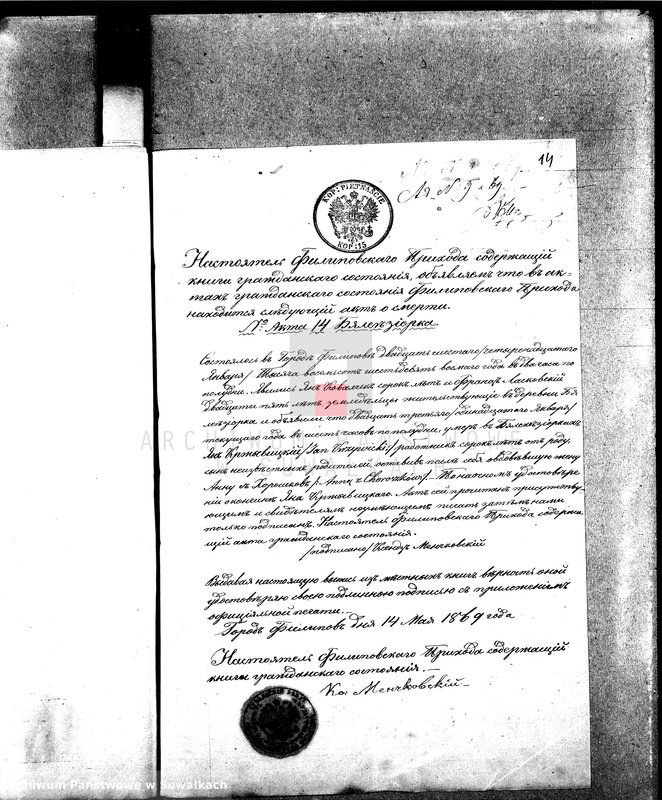 14
КОР: PIETNAŚCIE
КОР: 15
Ля N 5 69
Настоятель Филиповскаго Прихода содержащій
книги гражданскаго состоянія, объявляетъ что въ ак-
тахъ гражданскаго состоянія Филиповскаго Прихода
находится слѣдующій актъ о смерти.
№ Акта 14 Бялезіорка.
Состоялось въ Городѣ Филиповѣ двадцать шестаго/четырнадцатаго
Января/ Тысяча восемьсотъ шестьдесятъ восмаго года въ два часа по
полудни. Явились Янъ Ковалекъ сорокъ лѣтъ и Францъ Ласковскій
двадцать пять лѣтъ, земледѣльцы жительствующіе въ деревни Бя-
лезіорка и объявили что двадцать третьяго/одинадцатаго Января/
текущаго года въ шесть часовъ по полудни, умеръ въ Бялезіоркахъ
Янъ /Jan работникъ сорокъ лѣтъ отъ роду,
сынъ неизвѣстныхъ родителей, оставивъ послѣ себя овдовѣвшую жену
Анну съ Хорошковъ /Annę z Choroszków/. По насномъ удостовѣре-
ніи о кончинѣ Яна Актъ сей прочитанъ присутству-
ющимъ и свидѣтелямъ неумѣющимъ писать затѣмъ нами
только подписанъ. Настоятель Филиповскаго Прихода содержа-
щій акта гражданскаго состоянія.
/подписано/ Ксендзъ Менчковскій
Выдавая настоящую выпись изъ мѣстныхъ книгъ вѣрность оной
удостовѣряю своею подлинною подписью съ приложеніемъ
официяльной печати.
Городъ Филиповъ дня 14 Мая 1869 года
Настоятель Филиповскаго Прихода содержащій
книги гражданскаго состоянія.
Кс. Менчковскій
Archiwum Państwowe w Suwałkach